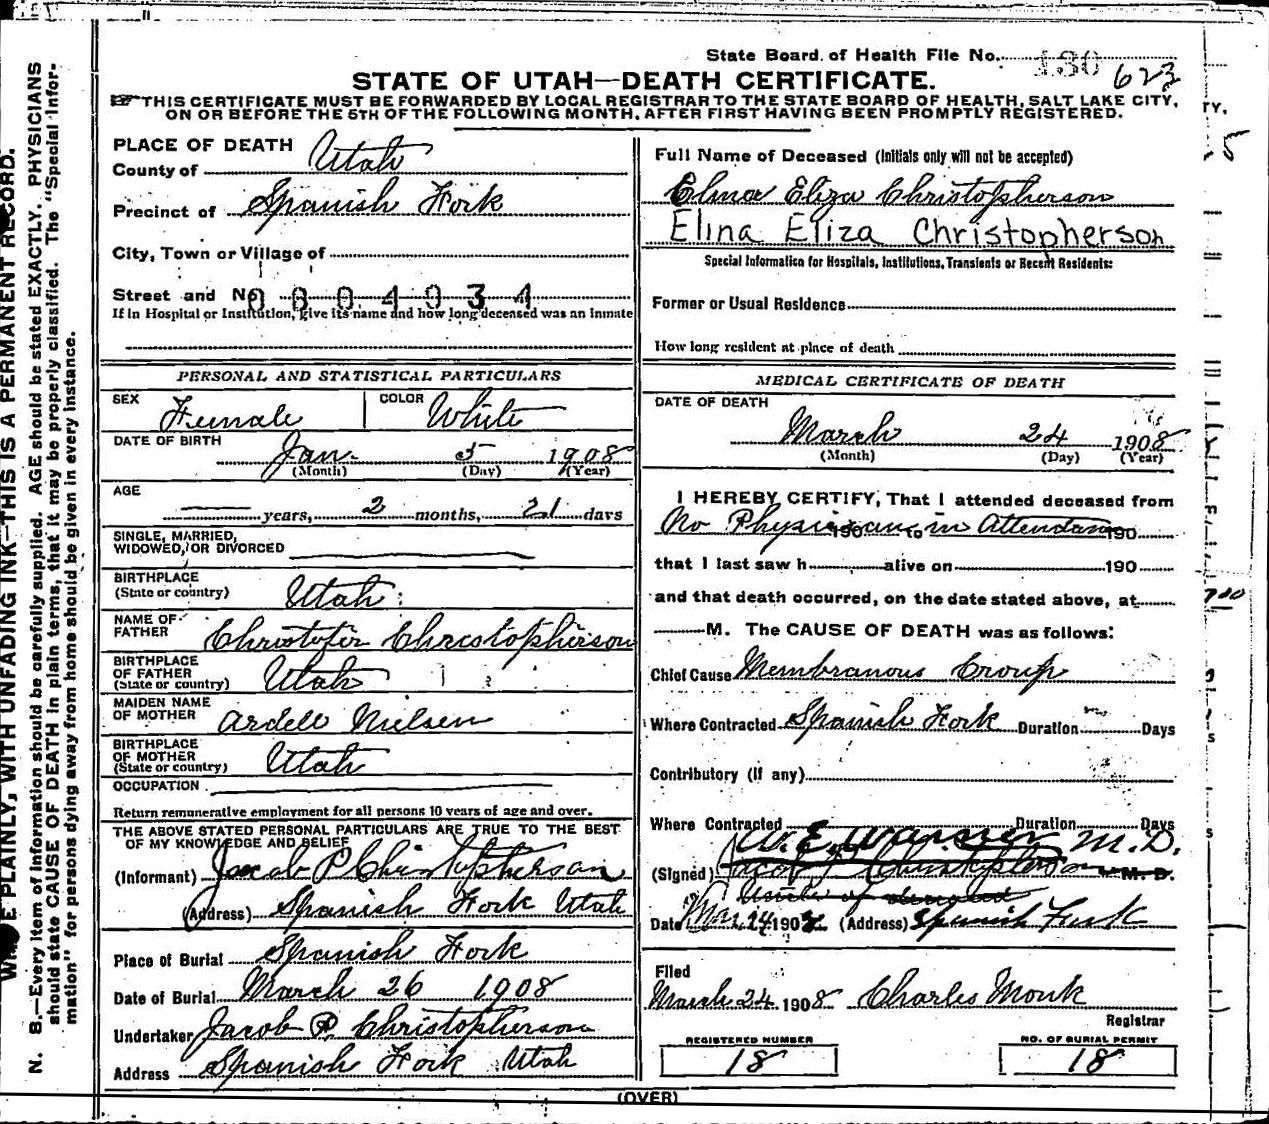 State Board of Health File No. 130 623
STATE OF UTAH—DEATH CERTIFICATE.
THIS CERTIFICATE MUST BE FORWARDED BY LOCAL REGISTRAR TO THE STATE BOARD OF HEALTH, SALT LAKE CITY,
ON OR BEFORE THE 5TH OF THE FOLLOWING MONTH, AFTER FIRST HAVING BEEN PROMPTLY REGISTERED.
PLACE OF DEATH
County of Utah
Precinct of Spanish Fork
City, Town or Village of
Street and No. 0804934
If in Hospital or Institution, give its name and how long deceased was an inmate
PERSONAL AND STATISTICAL PARTICULARS
SEX Female COLOR White
DATE OF BIRTH
Jan. 5 1908
(Month) (Day) (Year)
AGE
years, 2 months, 21 days
SINGLE, MARRIED,
WIDOWED, OR DIVORCED
BIRTHPLACE
(State or country) Utah
NAME OF
FATHER Christofer Christopherson
BIRTHPLACE
OF FATHER
(State or country) Utah
MAIDEN NAME
OF MOTHER Ardell Nielsen
BIRTHPLACE
OF MOTHER
(State or country) Utah
OCCUPATION
Return remunerative employment for all persons 10 years of age and over.
THE ABOVE STATED PERSONAL PARTICULARS ARE TRUE TO THE BEST
OF MY KNOWLEDGE AND BELIEF
(Informant) Jacob P Christopherson
(Address) Spanish Fork Utah
Place of Burial Spanish Fork
Date of Burial March 26 1908
Undertaker Jacob P. Christopherson
Address Spanish Fork Utah
Full Name of Deceased (Initials only will not be accepted)
Elina Eliza Christopherson
Elina Eliza Christopherson
Special Information for Hospitals, Institutions, Transients or Recent Residents:
Former or Usual Residence
How long resident at place of death
MEDICAL CERTIFICATE OF DEATH
DATE OF DEATH
March 24 1908
(Month) (Day) (Year)
I HEREBY CERTIFY, That I attended deceased from
No Physician in Attendance 190 to 190
that I last saw h alive on 190
and that death occurred, on the date stated above, at
M. The CAUSE OF DEATH was as follows:
Chief Cause Membranous Croup
Where Contracted Spanish Fork Duration Days
Contributory (if any)
Where Contracted Duration Days
W. E. Warner M.D.
(Signed) Jacob P Christopherson M. D.
Uncle of
Date Mar 24 1908 (Address) Spanish Fork
Filed
March 24 1908 Charles Monk
Registrar
REGISTERED NUMBER
18
NO. OF BURIAL PERMIT
18
(OVER)
E PLAINLY, WITH UNFADING INK—THIS IS A PERMANENT RECORD.
N. B.—Every item of information should be carefully supplied. AGE should be stated EXACTLY. PHYSICIANS
should state CAUSE OF DEATH in plain terms, that it may be properly classified. The "Special Infor-
mation" for persons dying away from home should be given in every instance.